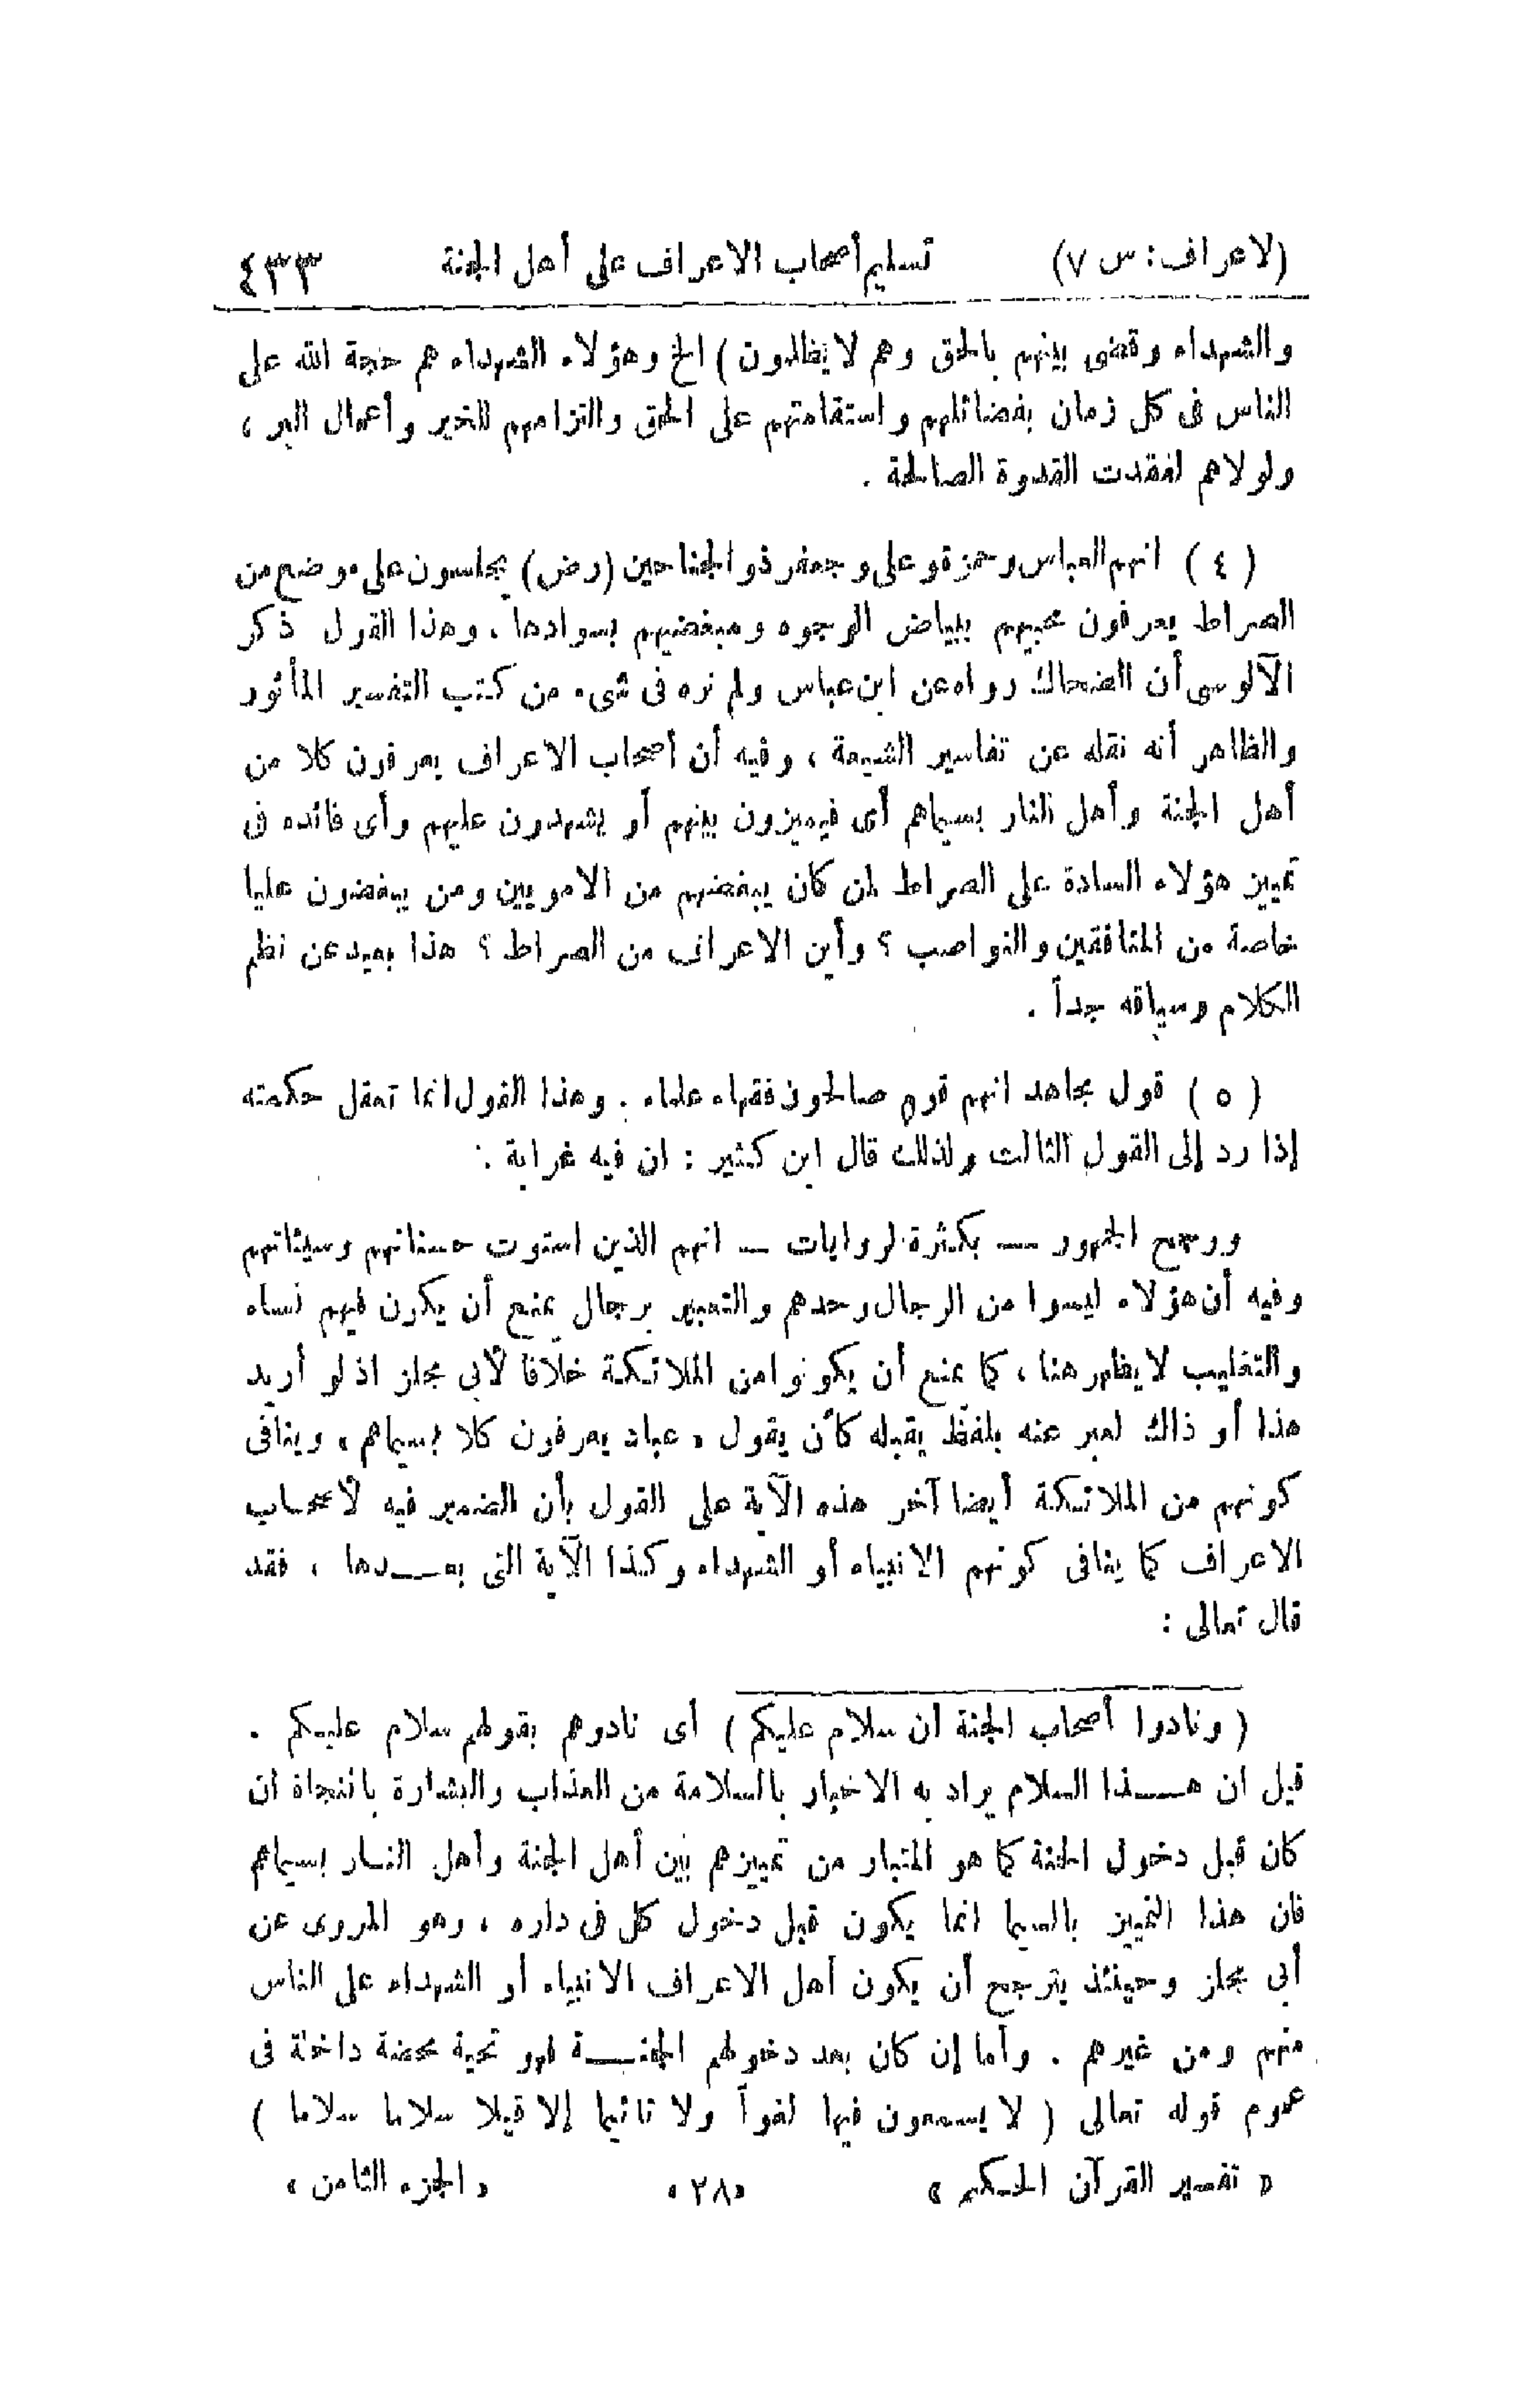 (لاعراف: س ٧) تسليم أصحاب الاعراف على أهل الجنة ٤٣٣
والشهداء وقضى بينهم بالحق وهم لا يظلمون ) الخ وهؤلاء الشهداء هم حجة الله على
الناس فى كل زمان بفضائلهم واستقامتهم على الحق والتزامهم للخير وأعمال البر ،
ولولاهم لفقدت القدوة الصالحة .
( ٤ ) انهم العباس وحمزة وعلى وجعفر ذو الجناحين (رض) يجلسون على موضع من
الصراط يعرفون محبيهم ببياض الوجوه ومبغضيهم بسوادها ، وهذا القول ذكر
الآلوسى أن الضحاك رواه عن ابن عباس ولم نره فى شىء من كتب التفسير المأثور
والظاهر أنه نقله عن تفاسير الشيعة ، وفيه أن أصحاب الاعراف يعرفون كلا من
أهل الجنة وأهل النار بسيماهم أى فيميزون بينهم أو يشهدون عليهم وأى فائده فى
تمييز هؤلاء السادة على الصراط لمن كان يبغضهم من الامويين ومن يبغضون عليا
خاصة من المنافقين والنواصب ؟ وأين الاعراف من الصراط ؟ هذا بعيد عن نظم
الكلام وسياقه جداً .
( ٥ ) قول مجاهد انهم قوم صالحون فقهاء علماء . وهذا القول انما تعقل حكمته
إذا رد إلى القول الثالث ولذلك قال ابن كثير : ان فيه غرابة .
ورجح الجمهور — بكثرة لروايات — انهم الذين استوت حسناتهم وسيئاتهم
وفيه أن هؤلاء ليسوا من الرجال وحدهم والتعبير برجال يمنع أن يكون فيهم نساء
والتغليب لا يظهر هنا ، كما يمنع أن يكونوا من الملائكة خلافا لأبى مجلز اذ لو أريد
هذا أو ذاك لعبر عنه بلفظ يقبله كأن يقول « عباد يعرفون كلا بسيماهم » وينافى
كونهم من الملائكة أيضا آخر هذه الآية على القول بأن الضمير فيه لأصحاب
الاعراف كما ينافى كونهم الانبياء أو الشهداء وكذا الآية التى بعـــدها ، فقد
قال تعالى :
( ونادوا أصحاب الجنة أن سلام عليكم ) أى نادوهم بقولهم سلام عليكم .
قيل ان هـــذا السلام يراد به الاخبار بالسلامة من العذاب والبشارة بالنجاة ان
كان قبل دخول الجنة كما هو المتبار من تمييزهم بين أهل الجنة وأهل النـار بسيماهم
فان هذا التمييز بالسيما انما يكون قبل دخول كل فى داره ، وهو المروى عن
أبى مجلز وحينئذ يترجح أن يكون أهل الاعراف الانبياء أو الشهداء على الناس
منهم ومن غيرهم . وأما إن كان بعد دخولهم الجنـــة فهو تحية محضة داخلة فى
عموم قوله تعالى ( لا يسمعون فيها لغواً ولا تاثيما إلا قيلا سلاما سلاما )
« تفسير القرآن الحكيم » «٢٨» « الجزء الثامن »